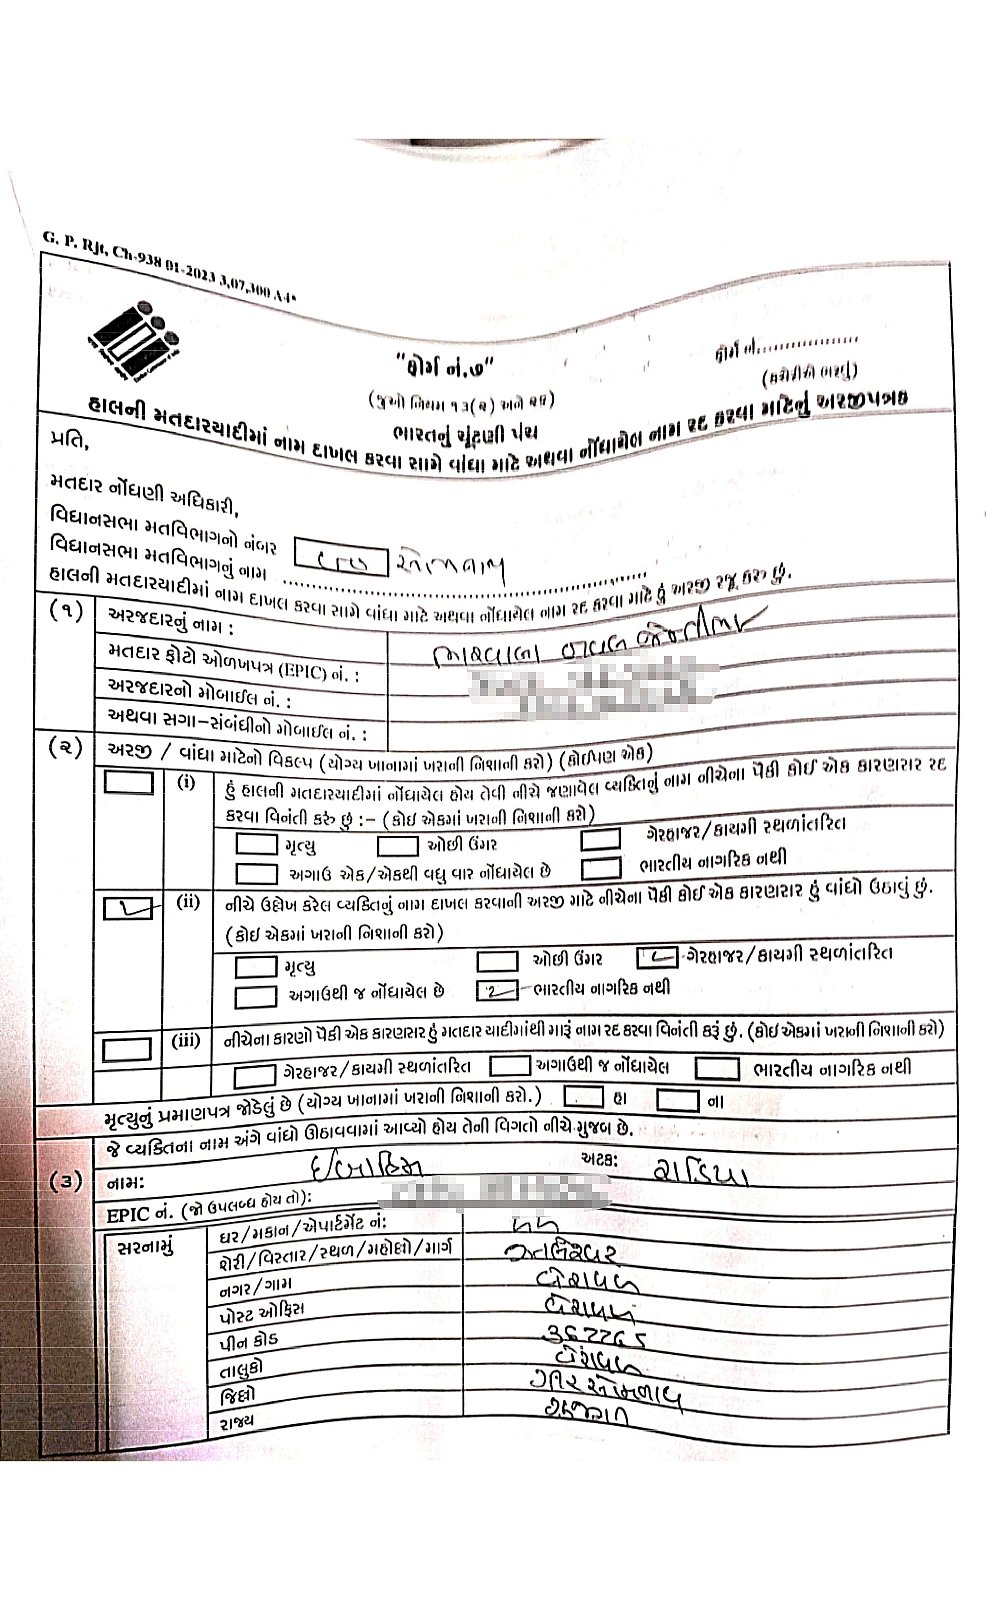 G. P. Rjt, Ch-938 01-2023 3,07,300 A4*
"ફોર્મ નં.૭"
ફોર્મ નં..................
(જુઓ નિયમ ૧૩(૨) અને ૨૬)
(કચેરીએ ભરવું)
ભારતનું ચૂંટણી પંચ
હાલની મતદારયાદીમાં નામ દાખલ કરવા સામે વાંધા માટે અથવા નોંધાયેલ નામ રદ કરવા માટેનું અરજીપત્રક
પ્રતિ,
મતદાર નોંધણી અધિકારી,
વિધાનસભા મતવિભાગનો નંબર
વિધાનસભા મતવિભાગનું નામ
હાલની મતદારયાદીમાં નામ દાખલ કરવા સામે વાંધા માટે અથવા નોંધાયેલ નામ રદ કરવા માટે હું અરજી રજૂ કરુ છું.
(૧) અરજદારનું નામ :
મતદાર ફોટો ઓળખપત્ર (EPIC) નં. :
અરજદારનો મોબાઈલ નં. :
અથવા સગા-સંબંધીનો મોબાઈલ નં. :
(૨) અરજી / વાંધા માટેનો વિકલ્પ (યોગ્ય ખાનામાં ખરાની નિશાની કરો) (કોઈપણ એક)
(i) હું હાલની મતદારયાદીમાં નોંધાયેલ હોય તેવી નીચે જણાવેલ વ્યક્તિનું નામ નીચેના પૈકી કોઈ એક કારણસર રદ
કરવા વિનંતી કરું છું :- (કોઇ એકમાં ખરાની નિશાની કરો)
મૃત્યુ ઓછી ઉંમર ગેરહાજર/કાયમી સ્થળાંતરિત
અગાઉ એક/એકથી વધુ વાર નોંધાયેલ છે ભારતીય નાગરિક નથી
(ii) નીચે ઉલ્લેખ કરેલ વ્યક્તિનું નામ દાખલ કરવાની અરજી માટે નીચેના પૈકી કોઈ એક કારણસર હું વાંધો ઉઠાવું છું.
(કોઇ એકમાં ખરાની નિશાની કરો)
મૃત્યુ ઓછી ઉંમર ગેરહાજર/કાયમી સ્થળાંતરિત
અગાઉથી જ નોંધાયેલ છે ભારતીય નાગરિક નથી
(iii) નીચેના કારણો પૈકી એક કારણસર હું મતદાર યાદીમાંથી મારૂં નામ રદ કરવા વિનંતી કરૂં છું. (કોઇ એકમાં ખરાની નિશાની કરો)
ગેરહાજર/કાયમી સ્થળાંતરિત અગાઉથી જ નોંધાયેલ ભારતીય નાગરિક નથી
મૃત્યુનું પ્રમાણપત્ર જોડેલું છે (યોગ્ય ખાનામાં ખરાની નિશાની કરો.) હા ના
જે વ્યક્તિના નામ અંગે વાંધો ઊઠાવવામાં આવ્યો હોય તેની વિગતો નીચે મુજબ છે.
(૩) નામ: ઈબ્રાહિમ અટક:
EPIC નં. (જો ઉપલબ્ધ હોય તો):
સરનામું ઘર/મકાન/એપાર્ટમેંટ નં:
શેરી/વિસ્તાર/સ્થળ/મહોલ્લો/માર્ગ
નગર/ગામ વેરાવળ
પોસ્ટ ઓફિસ વેરાવળ
પીન કોડ ૩૬૨૨૬૫
તાલુકો વેરાવળ
જિલ્લો ગીર સોમનાથ
રાજ્ય ગુજરાત